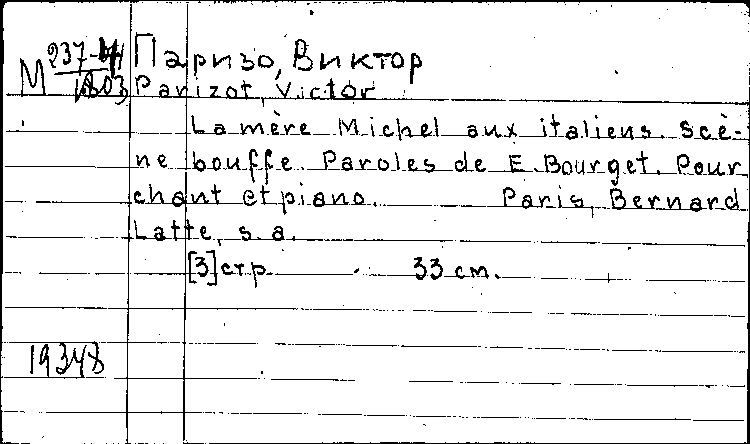 Паризо, Виктор
М 1803 Parizot, Victor
La mère Michel aux italiens. Scè-
ne bouffe. Paroles de E. Bourget. Pour
chant et piano. Paris, Bernard
Latte, s. a.
[3] стр. 33 см.
19348